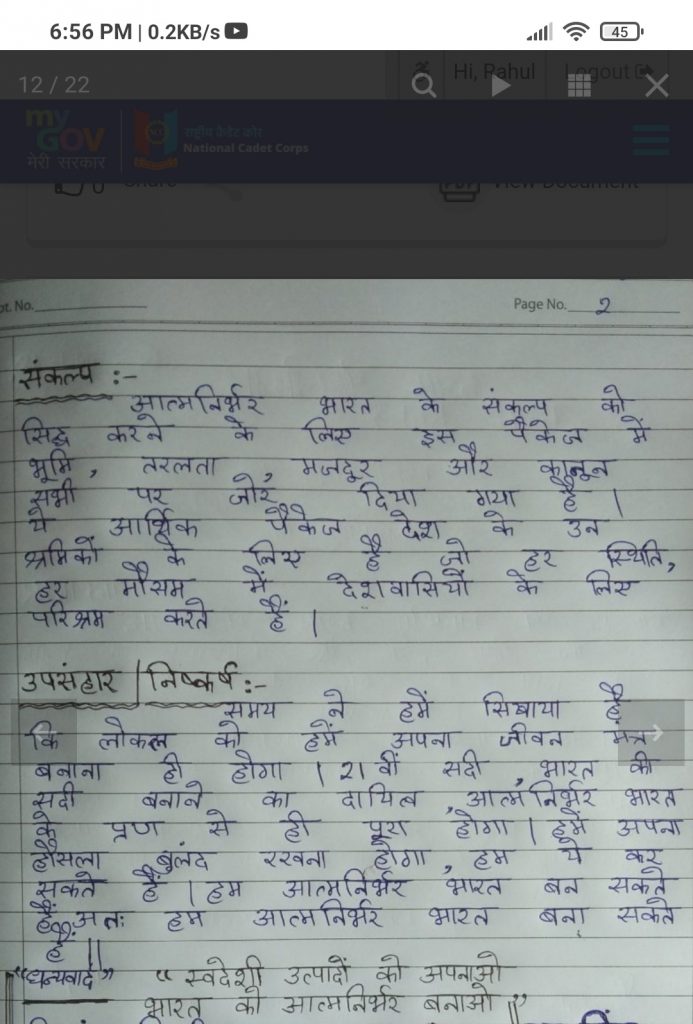 6:56 PM | 0.2KB/s
45
12 / 22
Hi, Rahul
Logout
my
GOV
मेरी सरकार
राष्ट्रीय कैडेट कोर
National Cadet Corps
0
Share
PDF
View Document
pt. No.
Page No. 2
संकल्प :-
आत्मनिर्भर भारत के संकल्प को
सिद्ध करने के लिए इस पैकेज में
भूमि, तरलता, मजदूर और कानून
सभी पर जोर दिया गया है |
ये आर्थिक पैकेज देश के उन
श्रमिकों के लिए है जो हर स्थिति,
हर मौसम में देशवासियों के लिए
परिश्रम करते हैं |
उपसंहार | निष्कर्ष :-
समय ने हमें सिखाया है
कि लोकल को हमें अपना जीवन मंत्र
बनाना ही होगा | 21 वीं सदी, भारत की
सदी बनाने का दायित्व, आत्मनिर्भर भारत
के प्रण से ही पूरा होगा | हमें अपना
हौसला बुलंद रखना होगा, हम ये कर
सकते हैं | हम आत्मनिर्भर भारत बन सकते
हैं अतः हम आत्मनिर्भर भारत बना सकते
हैं ||
"धन्यवाद" "स्वदेशी उत्पादों को अपनाओ
भारत को आत्मनिर्भर बनाओ ||"